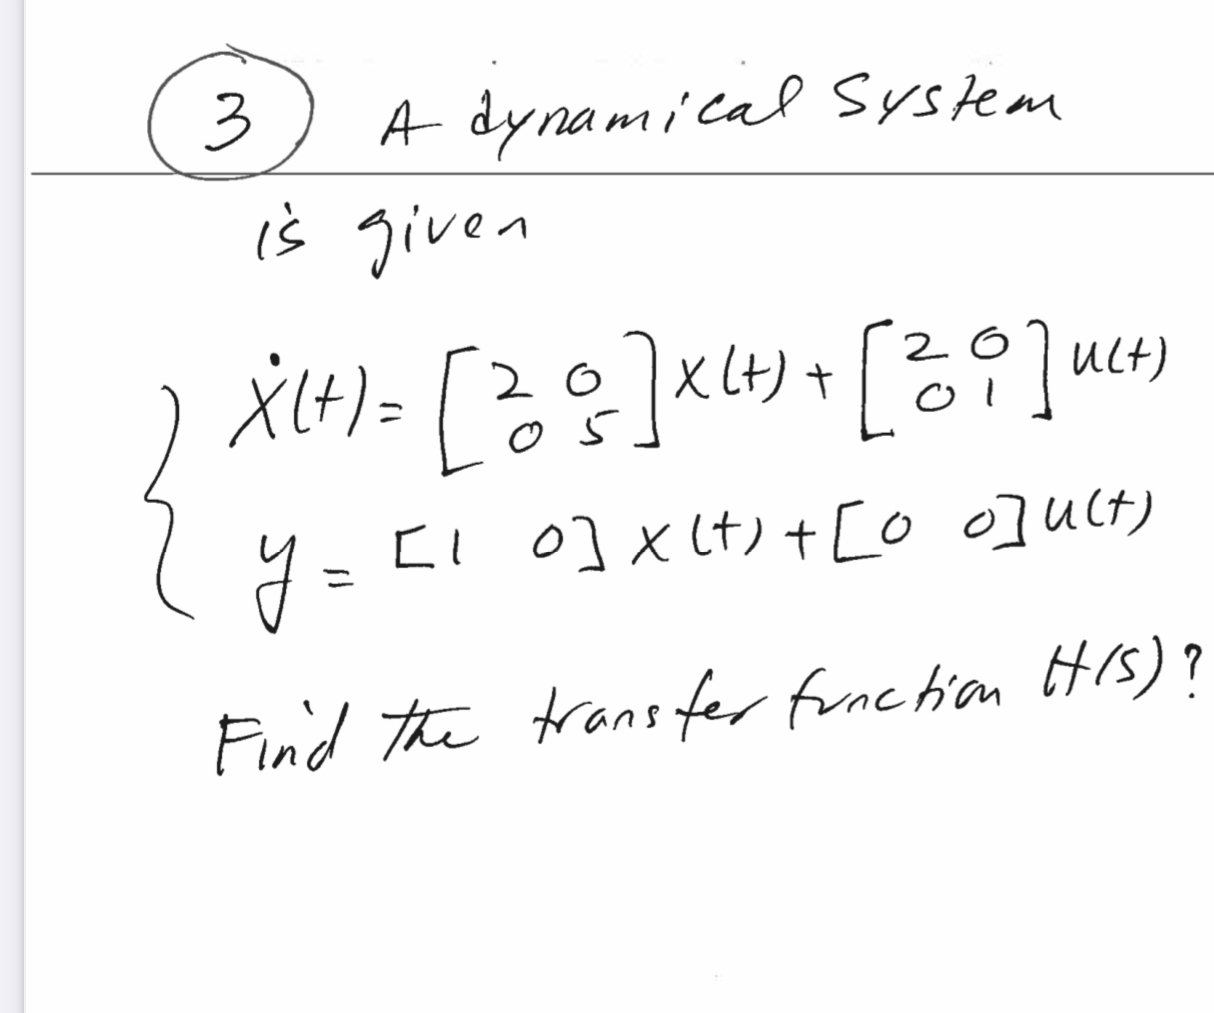 3 A dynamical System
is given
ẋ(t) = [2 0; 0 5] x(t) + [2 0; 0 1] u(t)
y = [1 0] x(t) + [0 0] u(t)
Find the transfer function H(s)?